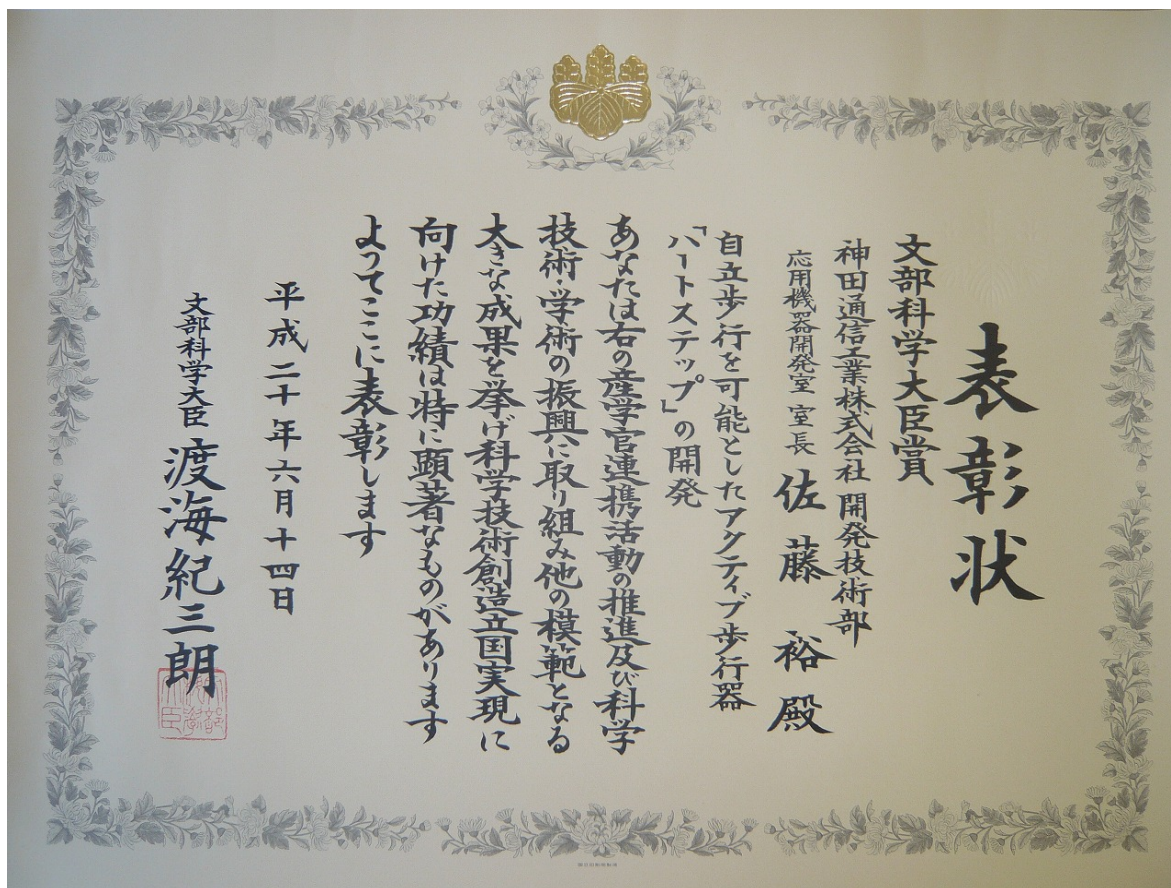 表彰状
文部科学大臣賞
神田通信工業株式会社 開発技術部
応用機器開発室 室長 佐藤 裕 殿
自立歩行を可能としたアクティブ歩行器
「ハートステップ」の開発
あなたは右の産学官連携活動の推進及び科学
技術・学術の振興に取り組み他の模範となる
大きな成果を挙げ科学技術創造立国実現に
向けた功績は特に顕著なものがあります
よってここに表彰します
平成二十年六月十四日
文部科学大臣 渡海紀三朗